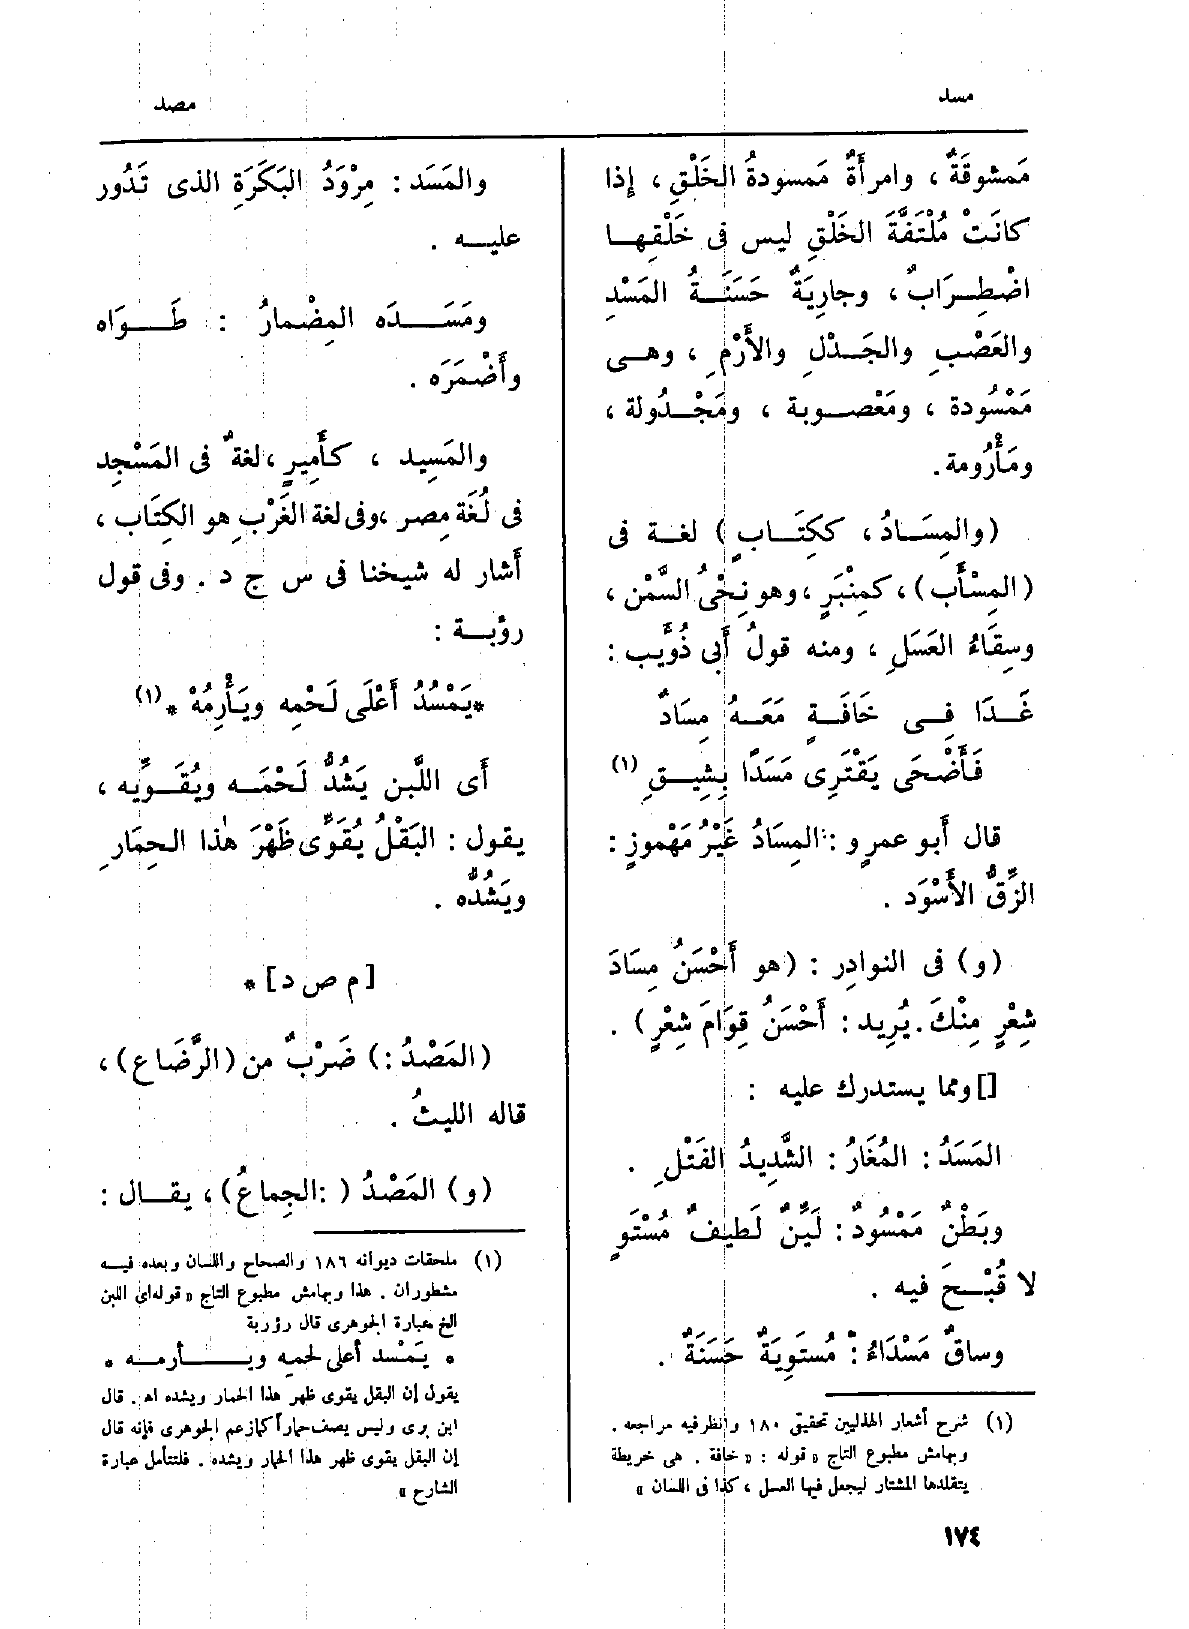 مسد
مصد
مَمشوقَةٌ ، وامرأَةٌ مَمسودةُ الخَلْقِ ، إِذا
كانَتْ مُلْتَفَّةَ الخَلْقِ ليس فى خَلْقِها
اضْطِرَابٌ ، وجارِيَةٌ حَسَنَةُ المَسْدِ
والعَصْبِ والجَدْلِ والأَرْمِ ، وهى
مَمْسُودة ، ومَعْصوبة ، ومَجْدُولة ،
ومَأْرُومة .
(والمِسَادُ ، ككِتَابٍ) لغة فى
(المِسْأَب) ، كمِنْبَرٍ ، وهو نِحْىُ السَّمْن ،
وسِقَاءُ العَسَلِ ، ومنه قولُ أَبى ذُؤَيب :
غَدَا فِى خَافَةٍ مَعَهُ مِسَادٌ
فَأَضْحَى يَقْتَرِى مَسَدًا بِشِيقِ (١)
قال أَبو عمرٍو : المِسَادُ غَيْرُ مَهْموزٍ :
الزِّقُّ الأَسْوَد .
(و) فى النوادِر : (هو أَحْسَنُ مِسَادَ
شِعْرٍ مِنْكَ . يُرِيد : أَحْسَنُ قِوَامَ شِعْرٍ) .
[] ومما يستدرك عليه :
المَسَدُ : المُغَارُ : الشَّدِيدُ الفَتْلِ .
وبَطْنٌ مَمْسُودٌ : لَيِّنٌ لَطِيفٌ مُسْتَوٍ
لا قُبْحَ فيه .
وساقٌ مَسْدَاءُ : مُستوِيَةٌ حَسَنَةٌ .
(١) شرح أشعار الهذليين تحقيقى ١٨٠ وانظر فيه مراجعه .
وبهامش مطبوع التاج « قوله : « خافة . هى خريطة
يتقلدها المشتار ليجعل فيها العسل ، كذا فى اللسان »
والمَسَد : مِرْوَدُ البَكَرَةِ الذى تَدُور
عليه .
ومَسَدَه المِضْمارُ : طَوَاه
وأَضْمَرَه .
والمَسِيد ، كأَمِيرٍ ، لغةٌ فى المَسْجِد
فى لُغَة مِصر ، وفى لغة الغَرْبِ هو الكِتَاب ،
أَشار له شيخنا فى س ج د . وفى قول
رؤْبة :
*يَمْسُدُ أَعْلَى لَحْمِه ويَأْرِمُهْ * (١)
أَى اللَّبن يَشُدُّ لَحْمَه ويُقَوِّيه ،
يقول : البَقْلُ يُقَوِّى ظَهْرَ هٰذا الحِمَارِ
ويَشُدُّه .
[ م ص د ] *
(المَصْدُ :) ضَرْبٌ من (الرَّضَاع) ،
قاله الليثُ .
(و) المَصْدُ ( : الجِماعُ) ، يقال :
(١) ملحقات ديوانه ١٨٦ والصحاح واللسان وبعده فيه
مشطوران . هذا وبهامش مطبوع التاج « قوله أى اللبن
الخ عبارة الجوهرى قال رؤبة
* يَمْسد أعلى لحمه ويأرمه *
يقول إن البقل يقوى ظهر هذا الحمار ويشده اه . قال
ابن برى وليس يصف حماراً كما زعم الجوهرى فإنه قال
إن البقل يقوى ظهر هذا الحمار ويشده . فلتتأمل عبارة
الشارح »
١٧٤